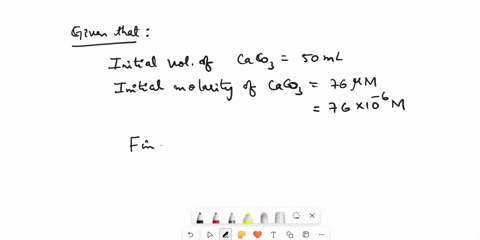 Given that :
Initial vol. of CaCO3 = 50 mL
Initial molarity of CaCO3 = 76 μM
= 76 × 10^-6 M
Fin